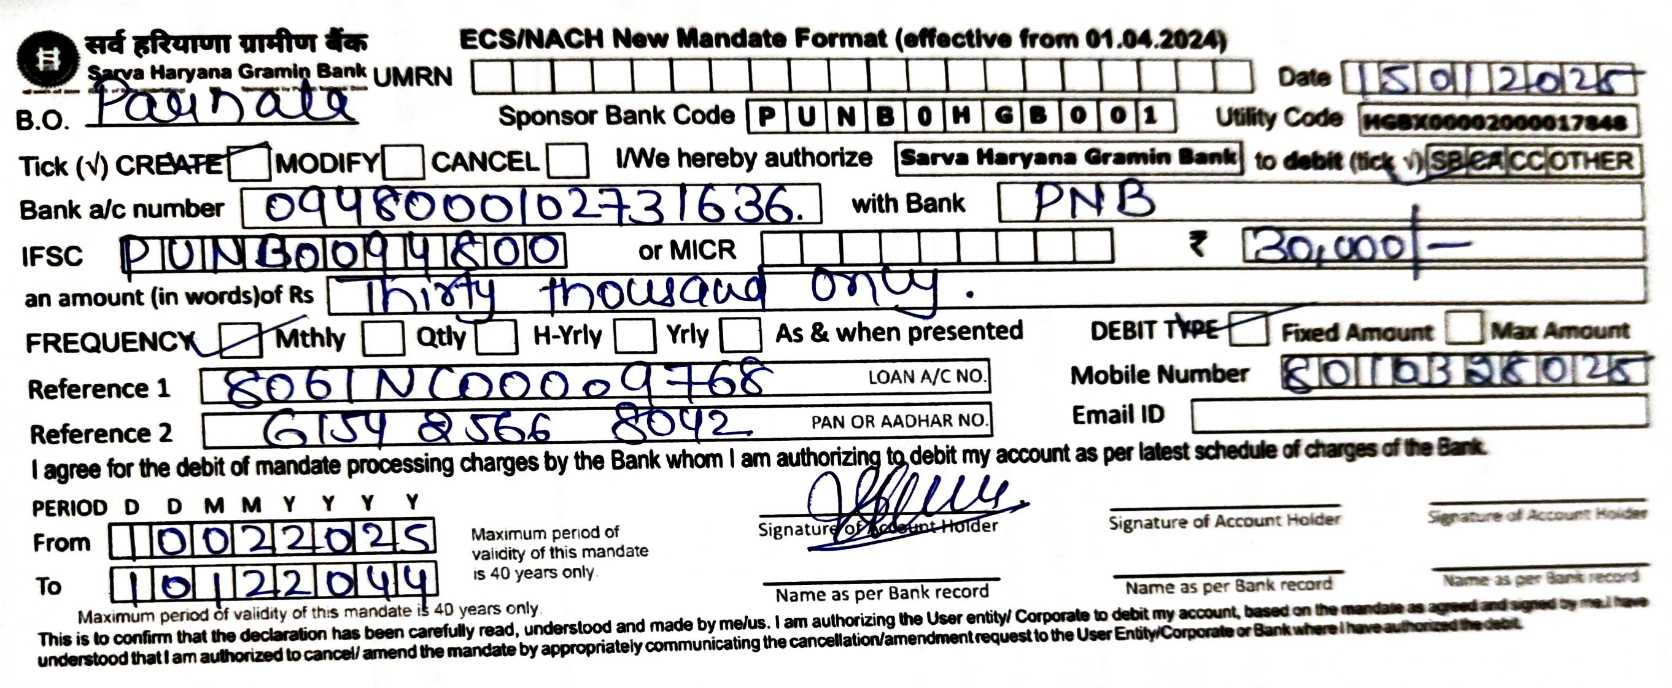 सर्व हरियाणा ग्रामीण बैंक
Sarva Haryana Gramin Bank
ECS/NACH New Mandate Format (effective from 01.04.2024)
UMRN
Date 15012025
B.O.
Sponsor Bank Code PUNB0HGB001
Utility Code HGBX00002000017848
Tick (√) CREATE MODIFY CANCEL I/We hereby authorize Sarva Haryana Gramin Bank to debit (tick √) SB CA CC OTHER
Bank a/c number 0948000102731636. with Bank PNB
IFSC PUNB0094800 or MICR ₹ 30,000/-
an amount (in words)of Rs Thirty thousand only.
FREQUENCY Mthly Qtly H-Yrly Yrly As & when presented DEBIT TYPE Fixed Amount Max Amount
Reference 1 8061NC00009768 LOAN A/C NO. Mobile Number
Reference 2 6154 8566 8042 PAN OR AADHAR NO. Email ID
I agree for the debit of mandate processing charges by the Bank whom I am authorizing to debit my account as per latest schedule of charges of the Bank.
PERIOD D D M M Y Y Y Y
From 10022025
To 10122044
Maximum period of
validity of this mandate
is 40 years only.
Signature of Account Holder Signature of Account Holder Signature of Account Holder
Name as per Bank record Name as per Bank record Name as per Bank record
Maximum period of validity of this mandate is 40 years only.
This is to confirm that the declaration has been carefully read, understood and made by me/us. I am authorizing the User entity/ Corporate to debit my account, based on the mandate as agreed and signed by me.I have
understood that I am authorized to cancel/ amend the mandate by appropriately communicating the cancellation/amendment request to the User Entity/Corporate or Bank where I have authorized the debit.